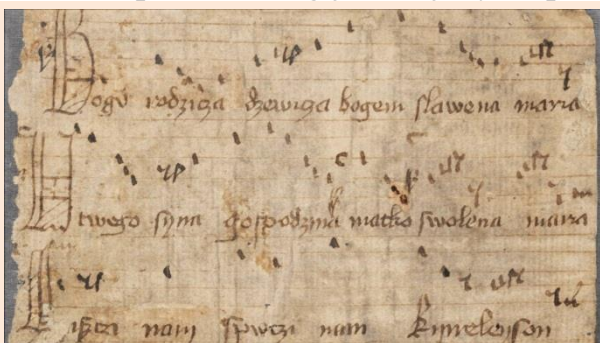 Bogu rodzica dzewica bogem slawena maria
U twego syna gospodzina matko swolena maria
Zisczi nam spwczi nam Kyrieleyson